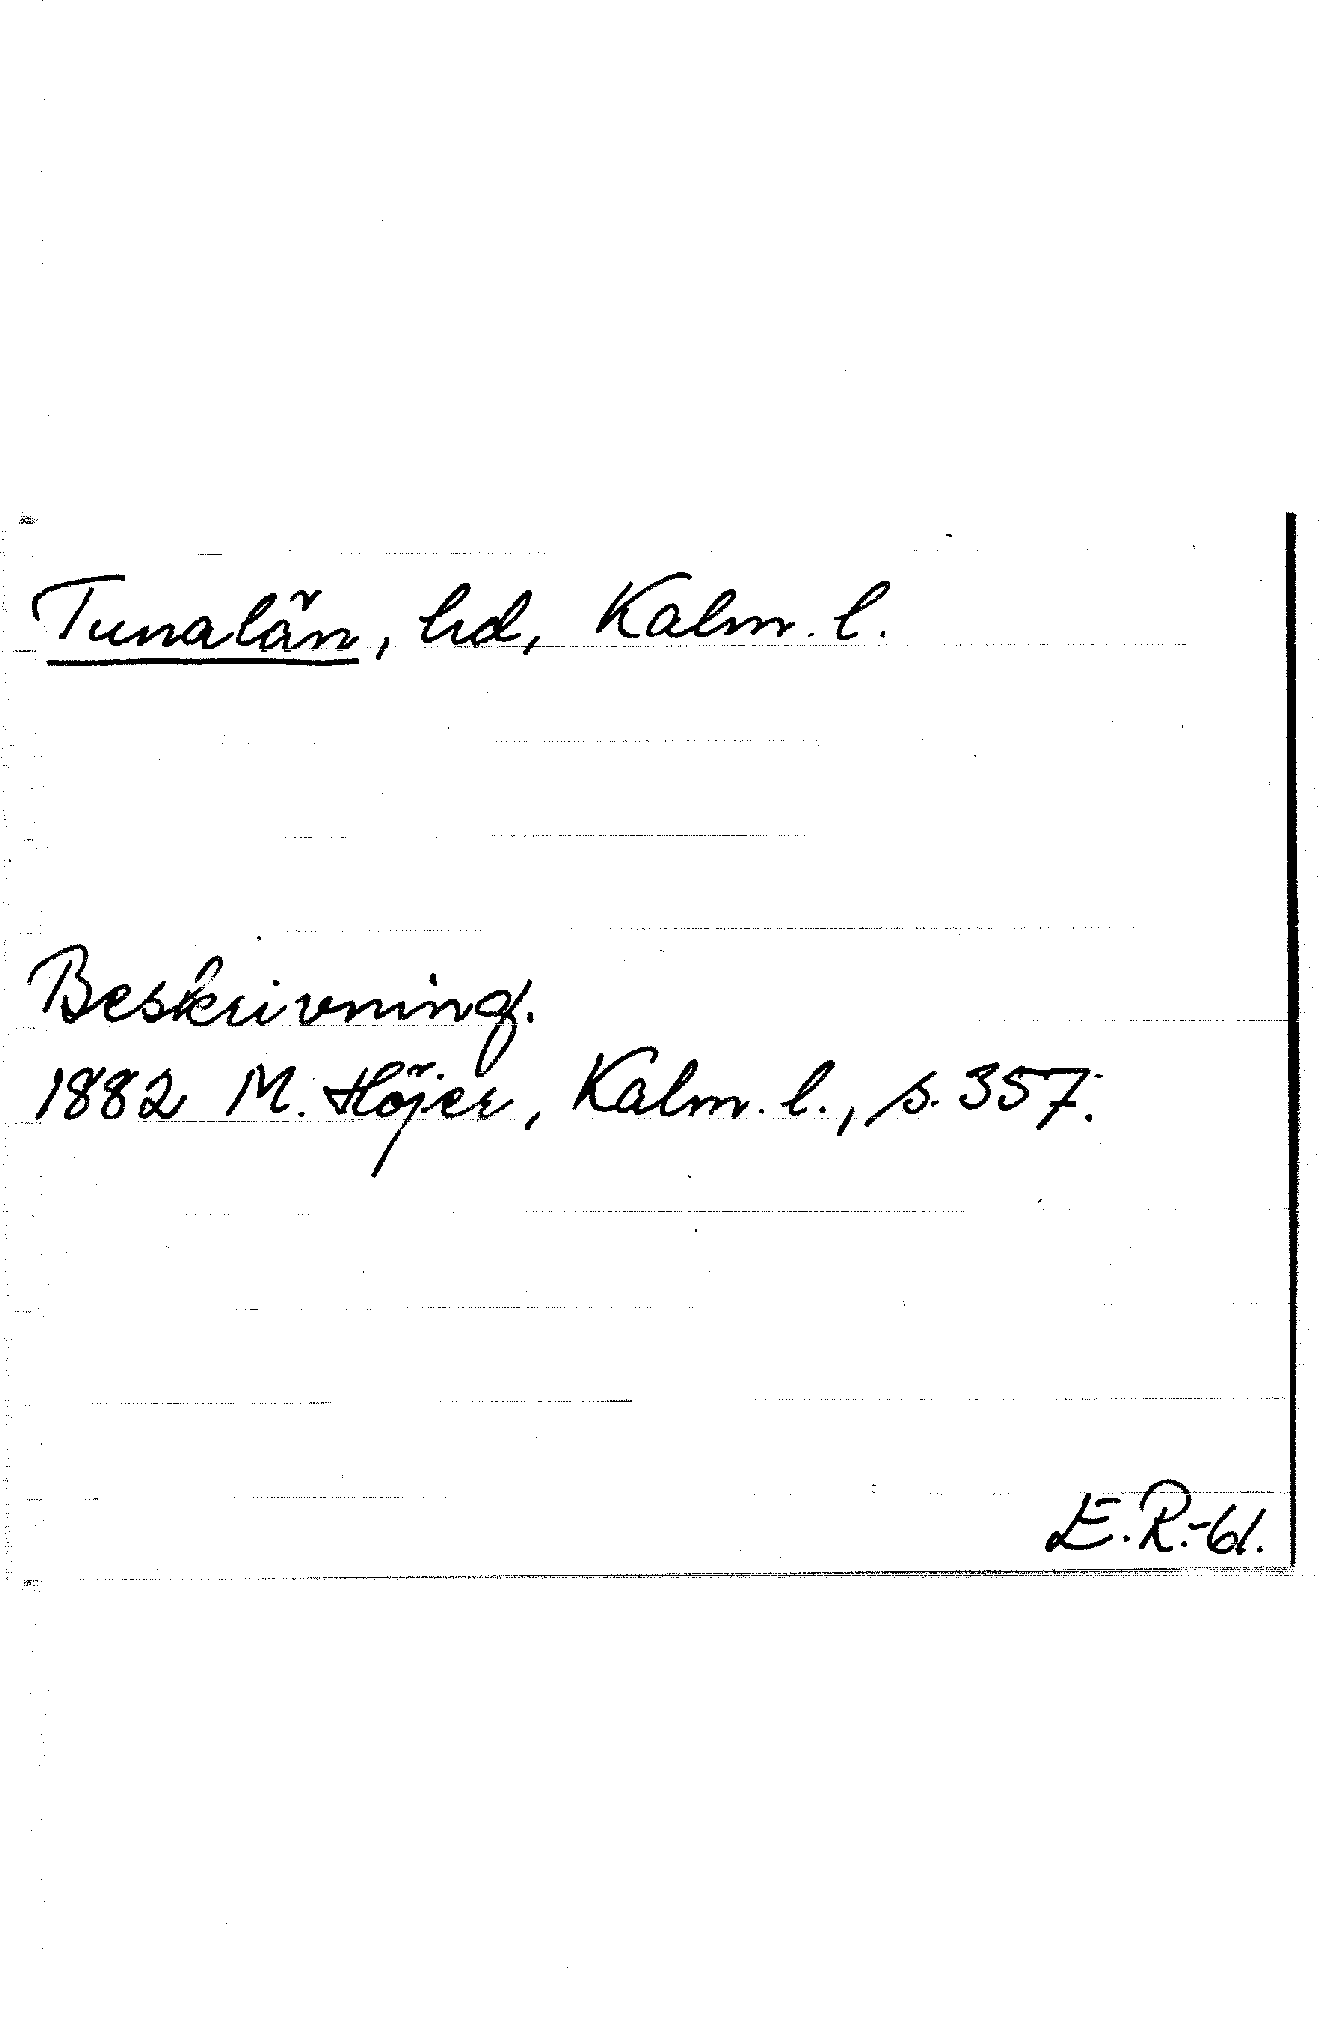 Tunalän, hd, Kalm. l.
Beskrivning.
1882 M. Höjer, Kalm. l., s. 357.
E.R.-61.